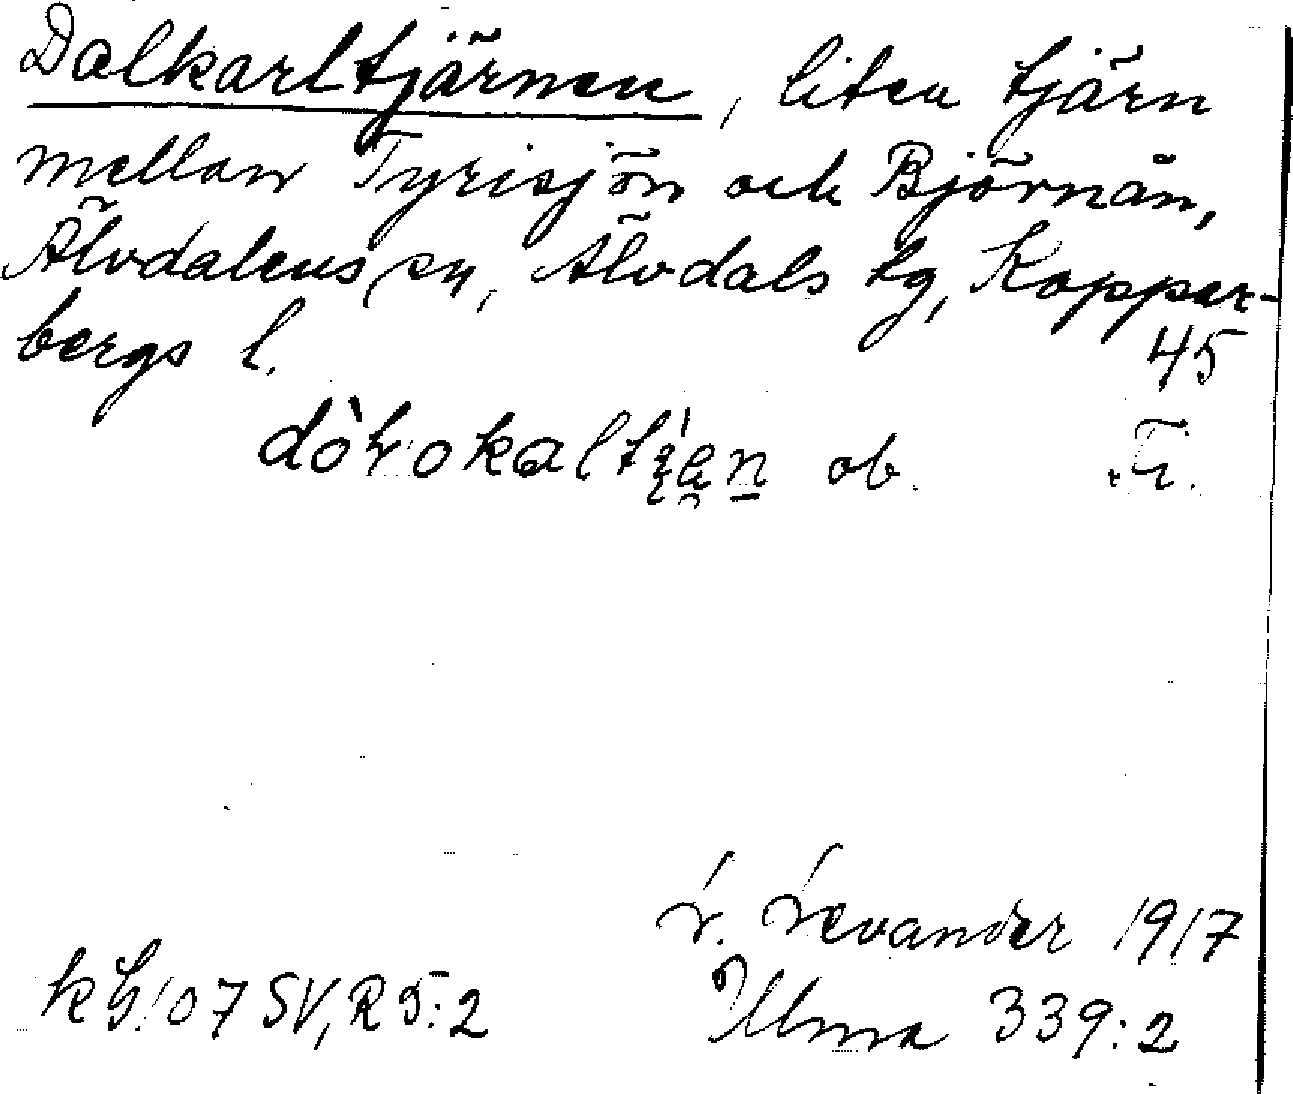 Dalkarltjärnen, liten tjärn
mellan Tyrisjön och Björnån,
Älvdalens sn, Älvdals tg, Koppar-
bergs l. 45
ob. Fi.
L. Levander 1917
07 SV, R 5:2 Ulma 339:2